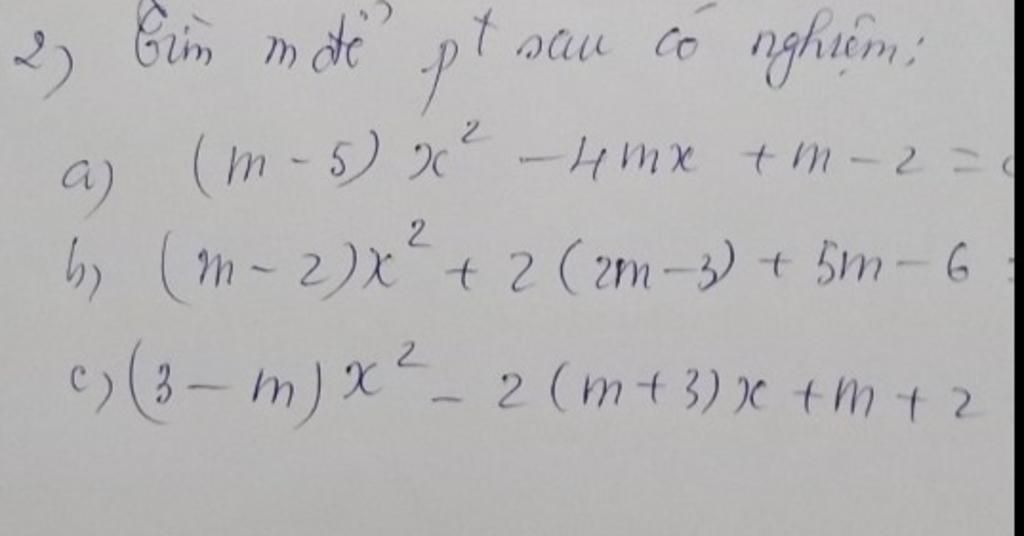 2) Tìm m để pt sau có nghiệm:
a) (m - 5) x² - 4mx + m - 2 =
b) (m - 2)x² + 2 (2m - 3) + 5m - 6
c) (3 - m) x² - 2 (m + 3) x + m + 2